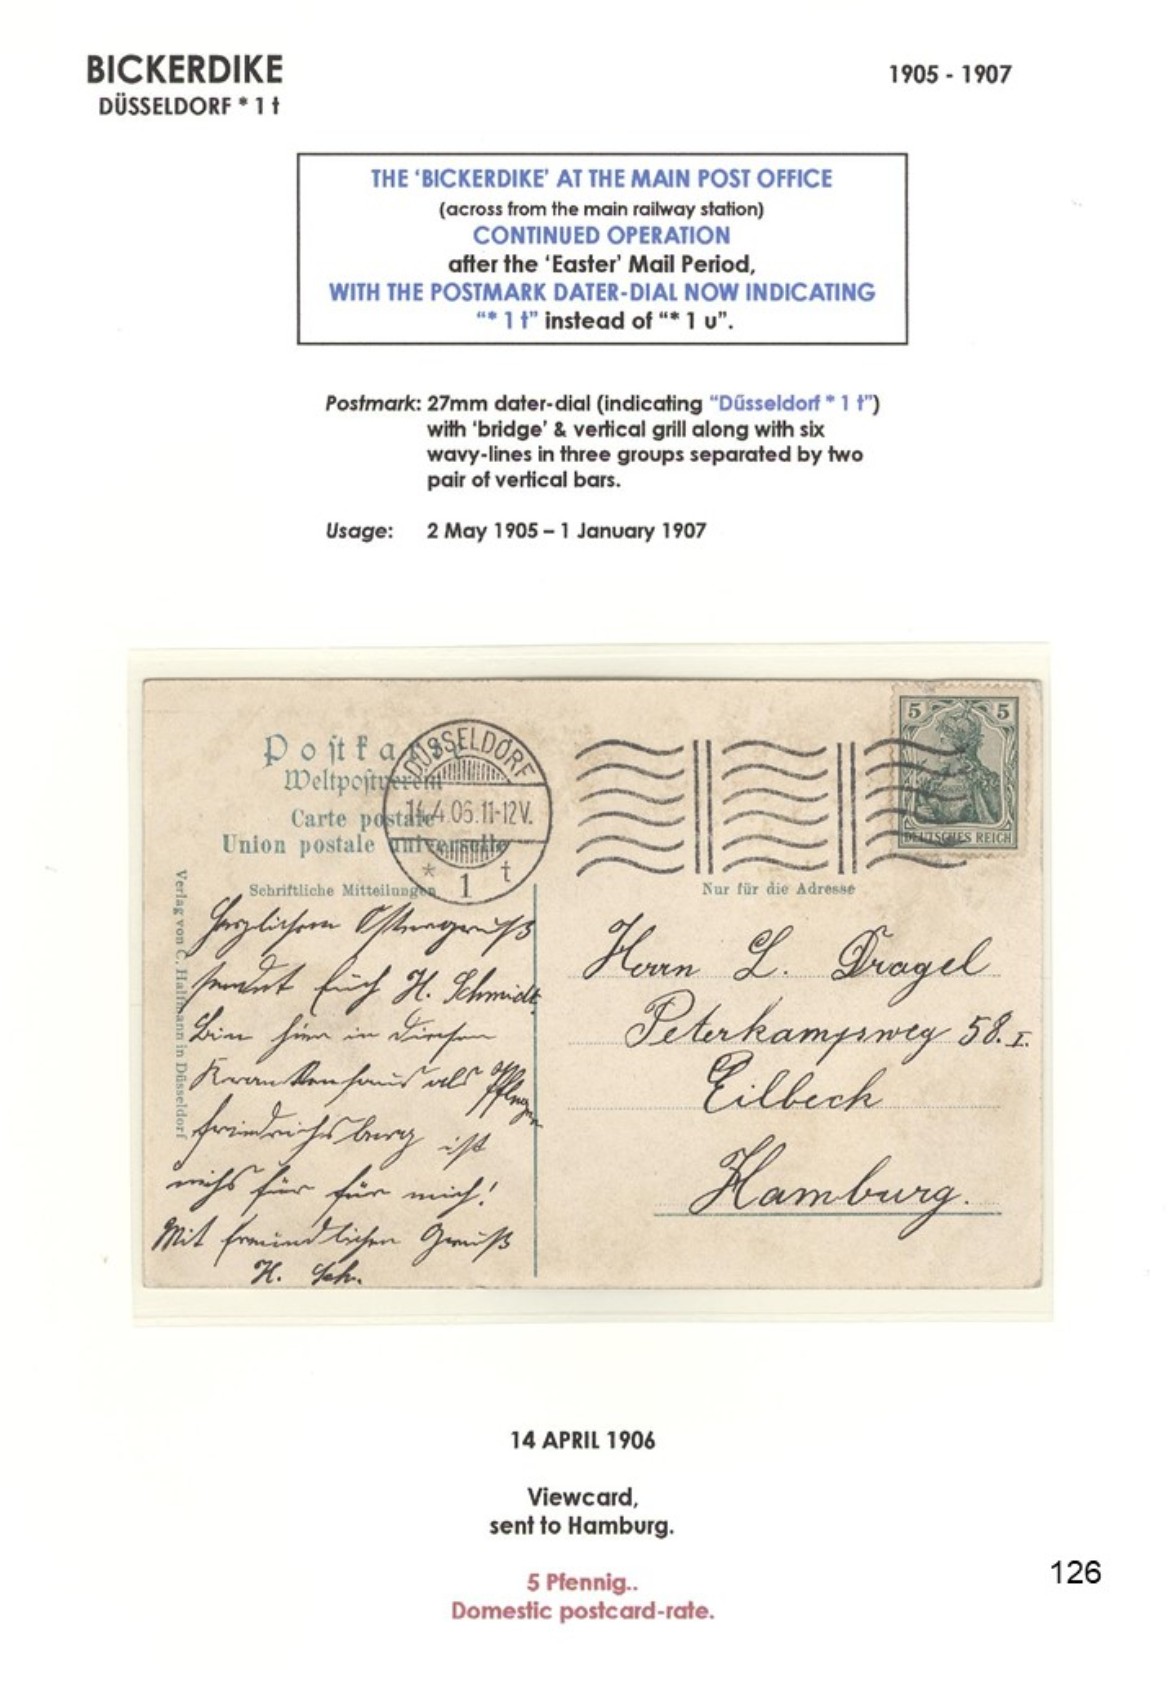 BICKERDIKE
DÜSSELDORF * 1 t
1905 - 1907
THE ‘BICKERDIKE’ AT THE MAIN POST OFFICE
(across from the main railway station)
CONTINUED OPERATION
after the ‘Easter’ Mail Period,
WITH THE POSTMARK DATER-DIAL NOW INDICATING
“* 1 t” instead of “* 1 u”.
Postmark: 27mm dater-dial (indicating “Düsseldorf * 1 t”)
with ‘bridge’ & vertical grill along with six
wavy-lines in three groups separated by two
pair of vertical bars.
Usage: 2 May 1905 – 1 January 1907
Postkarte
Weltpostverein
Carte postale
Union postale universelle
Schriftliche Mitteilungen
DÜSSELDORF
14.4.06.11-12V.
* 1 t
5 5
DEUTSCHES REICH
Nur für die Adresse
Verlag von C. Halfmann in Düsseldorf
Herzlichen Ostergruß
sendet Euch H. Schmidt.
Bin hier in diesem
Krankenhaus als Pfleger
Friedrichsberg ist
nichs für für mich!
Mit freundlichen Gruß
H. Sch.
Herrn L. Dragel
Peterkampsweg 58. I.
Eilbeck
Hamburg.
14 APRIL 1906
Viewcard,
sent to Hamburg.
5 Pfennig..
Domestic postcard-rate.
126